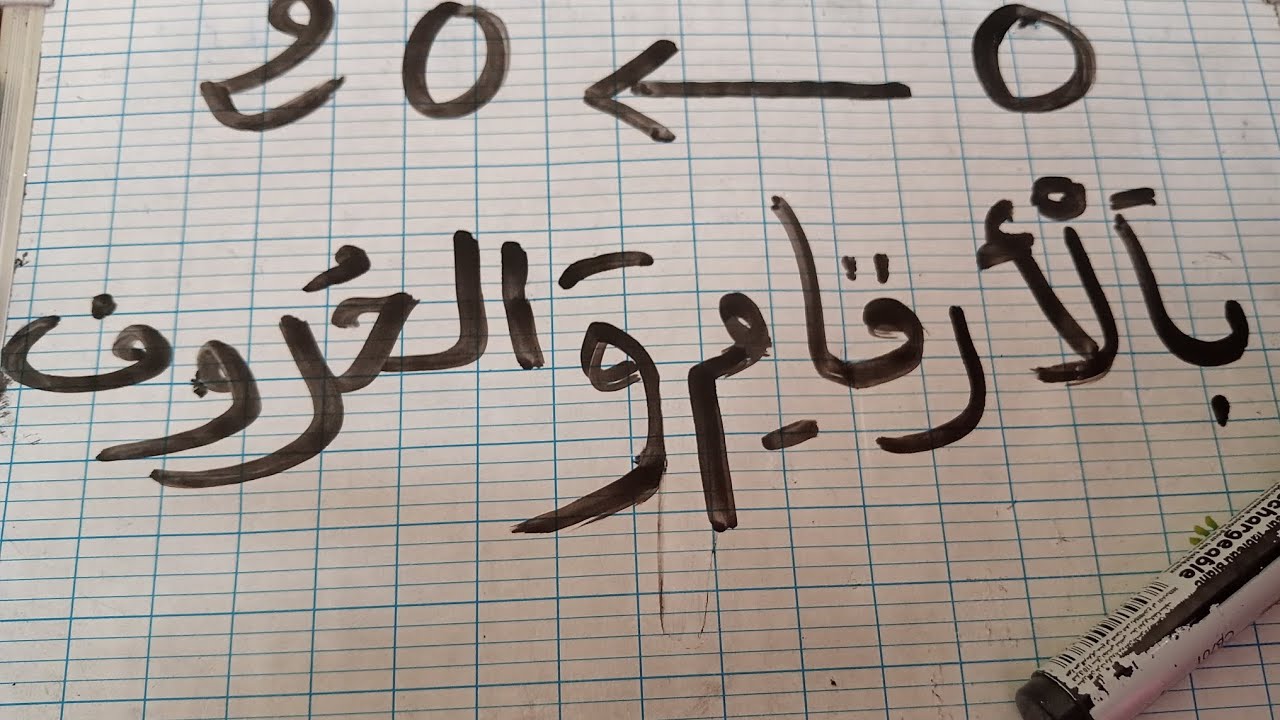 0 ← 20
بَالْأرقامِ وَالحُروف
chargeable